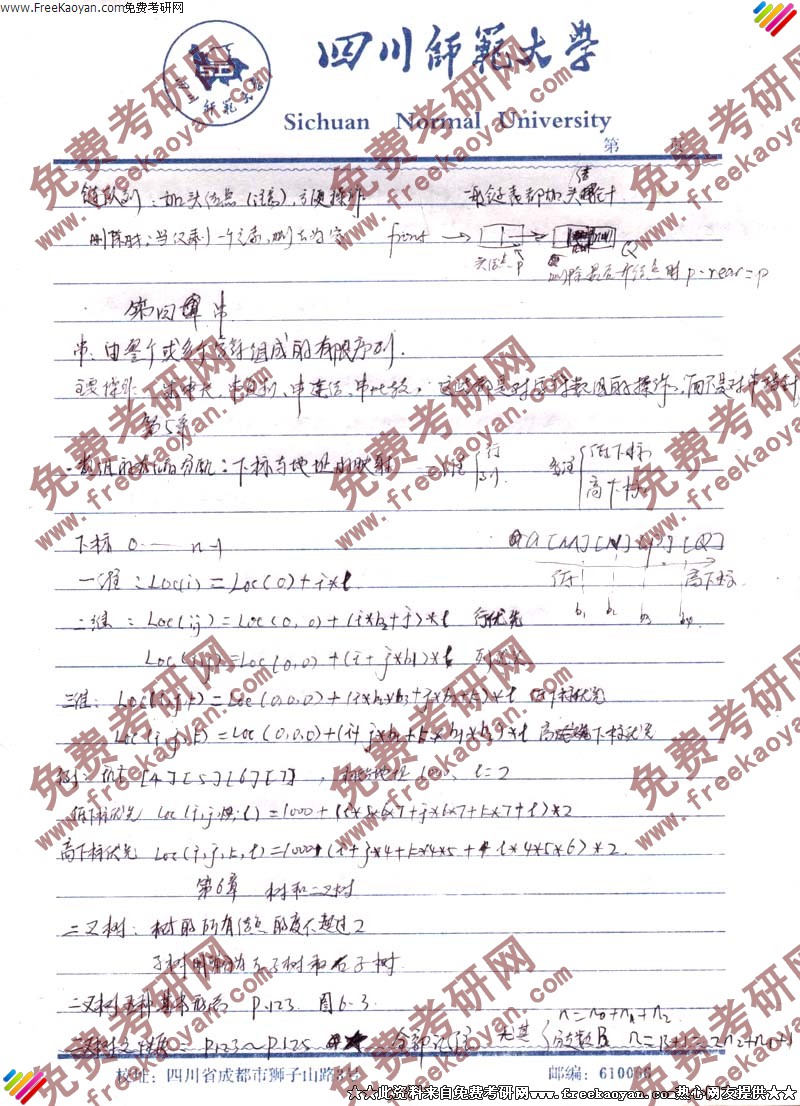 www.FreeKaoyan.com免费考研网
四川師範大學
Sichuan Normal University
第 页
链队列:加头结点(注意),方便操作 一般链表都加头结点
删除时:当仅剩一个元素,删去为空 front
头结点 P Q
删除最后一个结点时 p.rear=p
第四章 串
串:由零个或多个字符组成的有限序列.
主要操作:求串长、串复制、串连结、串比较,这些都是对字符数组的操作,而不是对串指针
第5章
数组的存储分配:下标与地址的映射 二维 行 列 多维 低下标 高下标
下标 0 —— n-1
一维:Loc(i)=Loc(0)+i*l 低 高下标
二维:Loc(ij)=Loc(0,0)+(i*b2+j)*l 行优先 b1 b2 b3 b4
Loc(i,j)=Loc(0,0)+(i+j*b1)*l 列优先
三维:Loc(i,j,k)=Loc(0,0,0)+(i*b2*b3+j*b3+k)*l 低下标优先
Loc(i,j,k)=Loc(0,0,0)+(i+j*b1+k*b1*b2)*l 高下标优先
例: [4][5][6][7],初始地址1000、l=2
低下标优先 Loc(i,j,k,l)=1000+(i*5*6*7+j*6*7+k*7+l)*2
高下标优先 Loc(i,j,k,l)=1000+(i+j*4+k*4*5+l*4*5*6)*2.
第6章 树和二叉树
二叉树:树的所有结点的度不超过2
子树明确分为左子树和右子树
二叉树五种基本形态 P.123 图6-3
二叉树之性质:P.123~P.125 ★ 全部记住 尤其 n=n0+n1+n2
分支数B n=B+1=2n2+n1+1
校址:四川省成都市狮子山路3号 邮编:610066
★★此资料来自免费考研网www.freekaoyan.com热心网友提供★★
免费考研网
www.freekaoyan.com